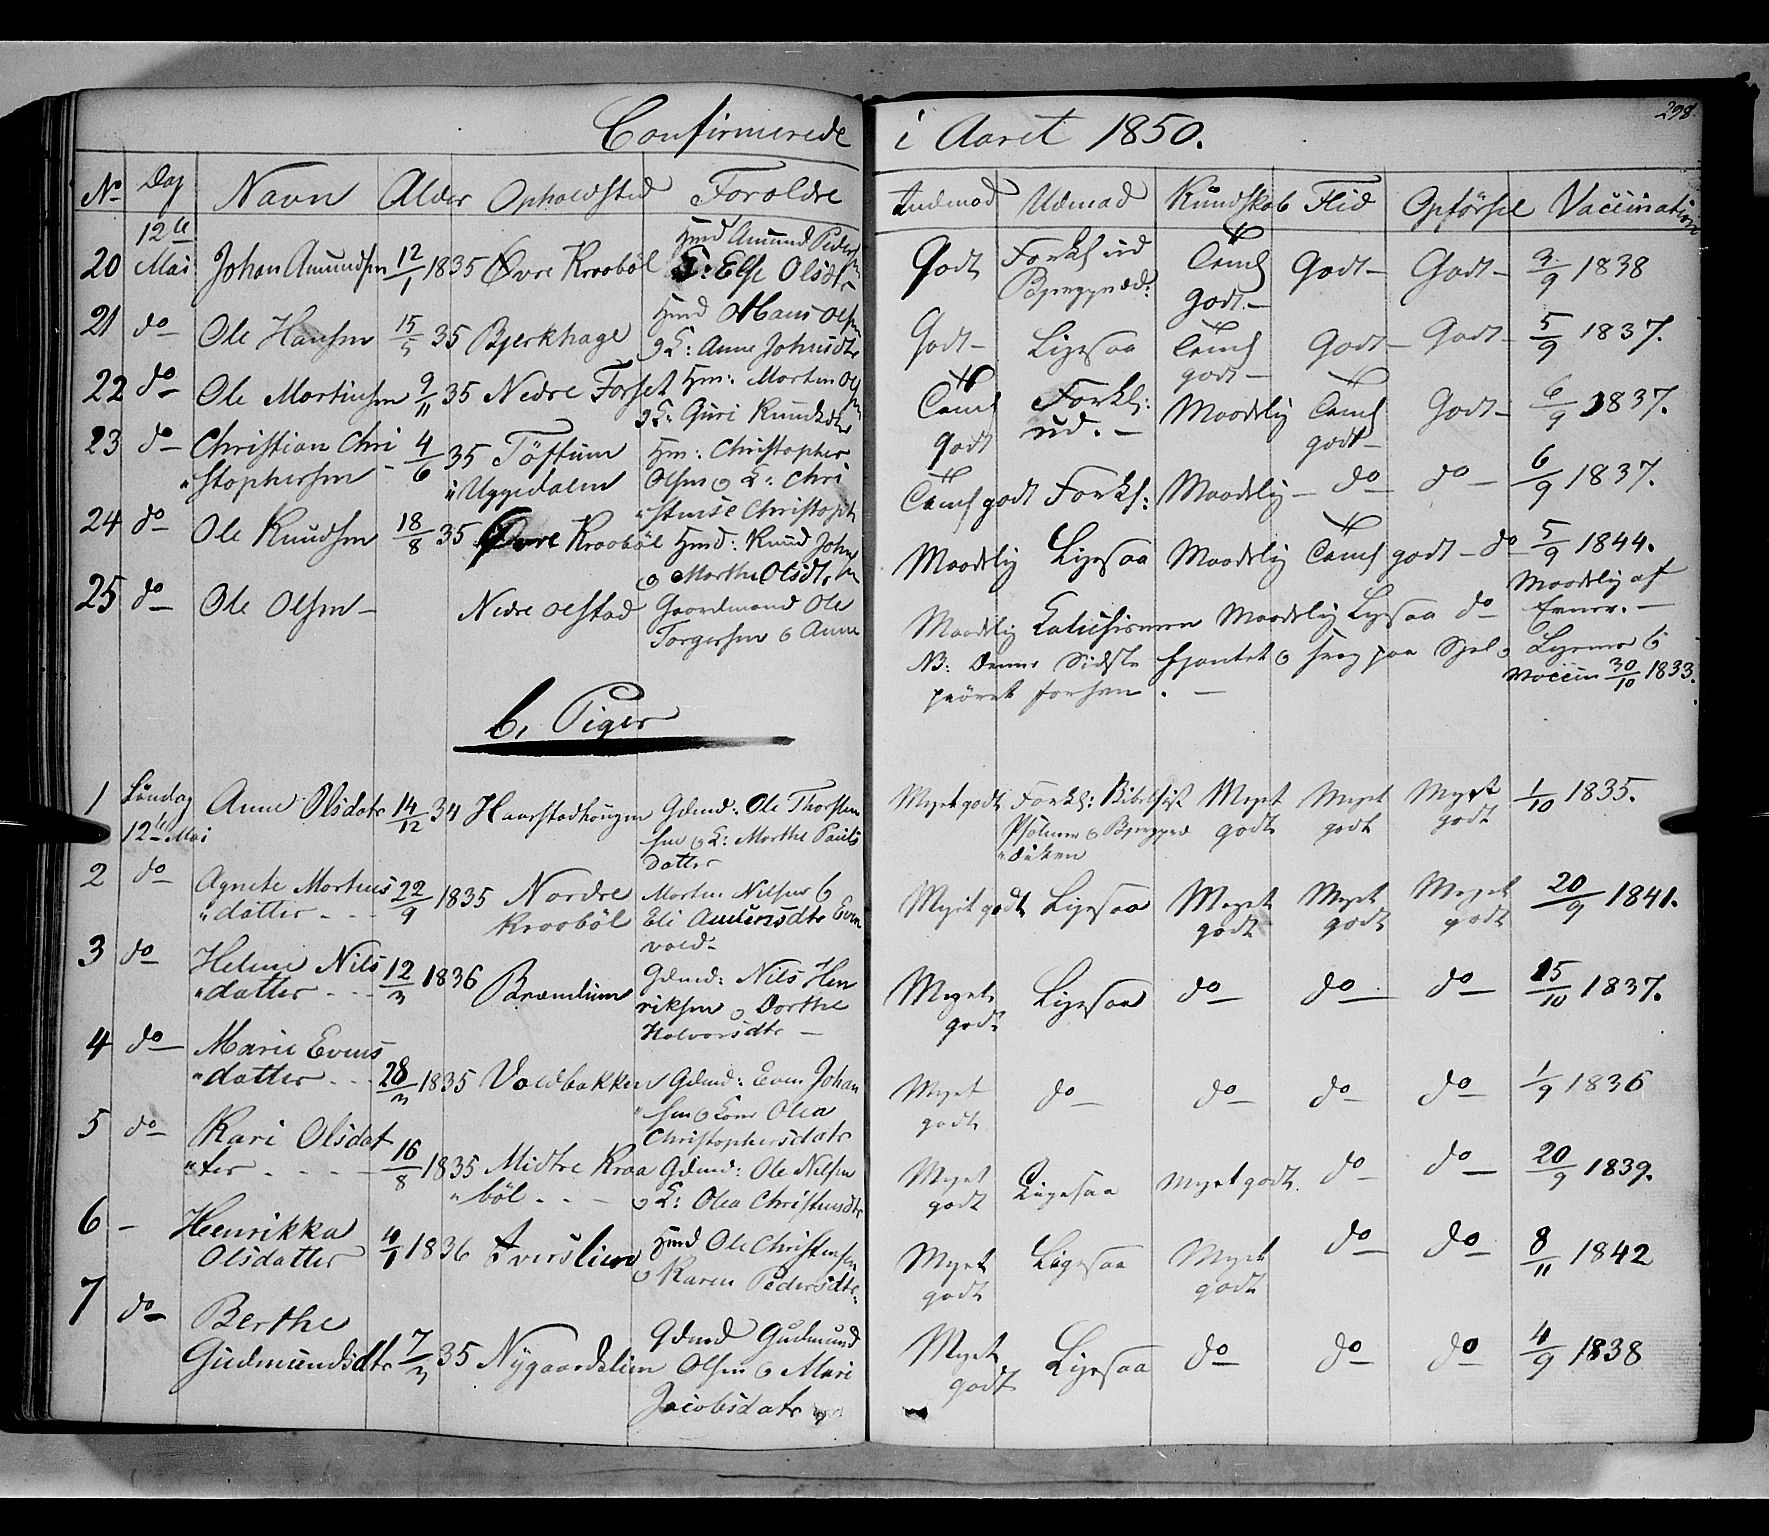 Confirmerede i Aaret 1850.
298.
No Dag Navn Alder Opholdsted Foroldre Indenad Udenad Kundskab Flid Opførsel Vaccination
12te Hmd Amund Peders
20 Mai Johan Amundsen 12/1 1835 Øvre Kroobøl K: Else Olsdtr Godt Forkl: ud Temel godt Godt Godt 3/9 1838
21 do Ole Hansen 15/5 35 Bjerkhage Hmd Hans Olsen
o K: Anne Johnsdtr Godt Ligesaa Temel godt Godt Godt 5/9 1837.
22 do Ole Mortensen 9/11 35 Nedre Forset Hm: Morten Olsen
o K: Guri Knudsdtr Temel godt Forkl: ud. Maadelig Temel godt Godt 6/9 1837.
23 do Christian Chri
"stophersen 4/6 35 Töftum
i Uggedalen Hm: Christopher
Olsen o K: Chri
"stense Christoph Temel godt Forkl: Maadelig do do 6/9 1837.
24 do Ole Knudsen 18/8 35 Øvre Kroobøl Hmd: Knud Johns
o Marthe Olsdtr Maadelig Ligesaa Maadelig Temel godt do 5/9 1844.
25 do Ole Olsen Nedre Olstad Gaardmand Ole
Torgersen o Anne Maadelig Katechismen Maadelig Ligesaa do Maadelig af
Evner.
NB: Denne Sidste o svag paa Sjel o Legeme
forhen. Vaccin 30/10 1833.
b, Piger
1 Søndag
12te Mai Anne Olsdatr 14/12 34 Haarstadhougen Gdmd: Ole Thorsten
sen o K: Marthe Pauls
datter Meget godt Forkl: Bibelhist
Psalmer o Meget godt Meget godt Meget godt 1/10 1835.
2 do Agnete Martins
"datter 22/9 1835 Nordre
Kroobøl Morten Nilsen o
Eli Amundsdtr Even
vold Meget godt Ligesaa Meget godt Meget godt Meget godt 20/9 1841.
3 do Helene Nils
"datter 12/3 1836 Brændlien Gdmd: Nils Hen
riksen o Dorthe
Halvorsdtr Meget godt Ligesaa do do do 15/10 1837.
4 do Marie Evens
"datter 28/3 1835 Voldbakken Gdmd: Even Johan
"sen o Kone Olea
Christophersdatr Meget godt do do do do 1/9 1836
5 do Kari Olsdat
"ter 16/8 1835 Midtre Kroa
"bøl Gdmd: Ole Nilsen
o K: Olea Christensdtr Meget godt Ligesaa Meget godt. do do 20/9 1839.
6 Henrikka
Olsdatter 4/1 1836 Iverslien Hmd Ole Christensen
o Karen Pedersdtr: Meget godt Ligesaa Meget godt do do 8/11 1842
7 do Berthe
Gudmundsdtr 7/3 35 Nygaardslien Gdmd Gudmund
Olsen o Mari
Jacobsdatr Meget godt Ligesaa do do do 4/9 1838